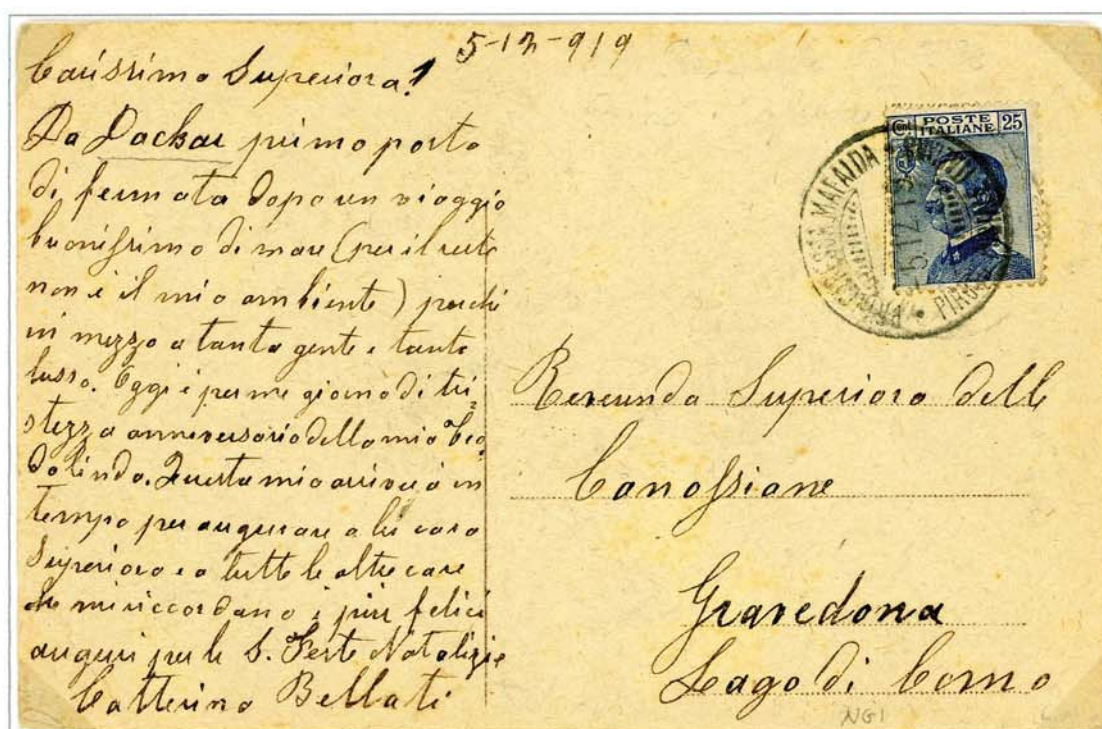 5-12-919
Carissima Superiora!
Da Dackar primo porto
di fermata dopo un viaggio
buonissimo di mare (per il resto
non è il mio ambiente) perchè
in mezzo a tanta gente e tanto
lusso. Oggi è per me giorno di tri=
stezza anniversario della mia Teo
dolinda. Questa mia arriverà in
tempo per augurare a lei cara
Superiora e a tutte le altre care
che mi riccordano i più felici
auguri per le S. Feste Natalizie
Catterina Bellati
Cent POSTE 25
ITALIANE
PRINCIPESSA MAFALDA
5.12.19
Reverenda Superiora delle
Canossiane
Gravedona
Lago di Como
NGI